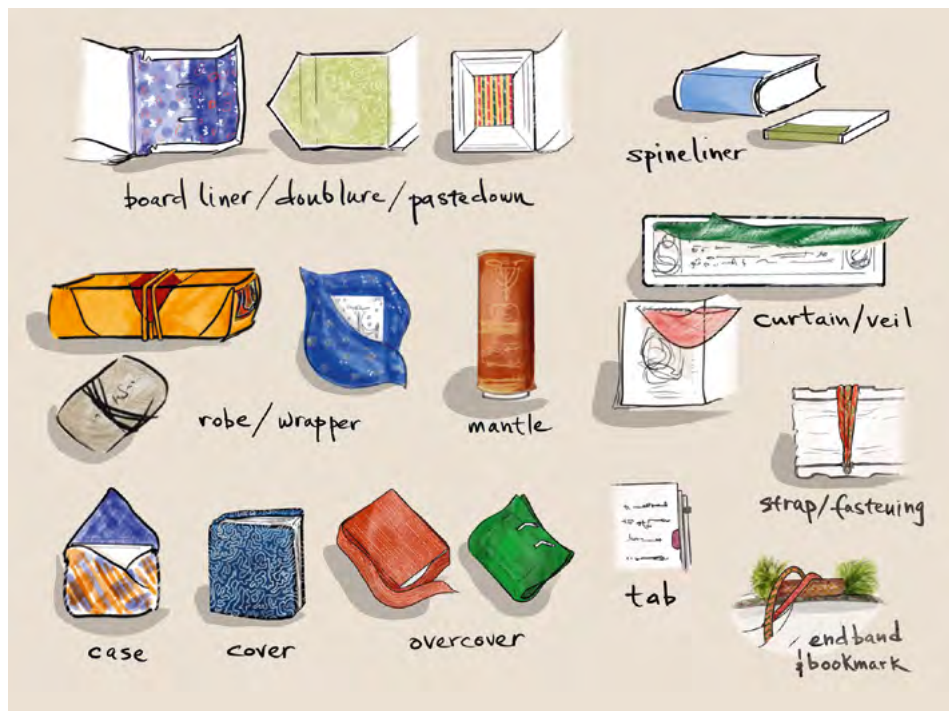 board liner/doublure/pastedown
spineliner
curtain/veil
robe/wrapper
mantle
strap/fastening
case
cover
overcover
tab
endband
& bookmark